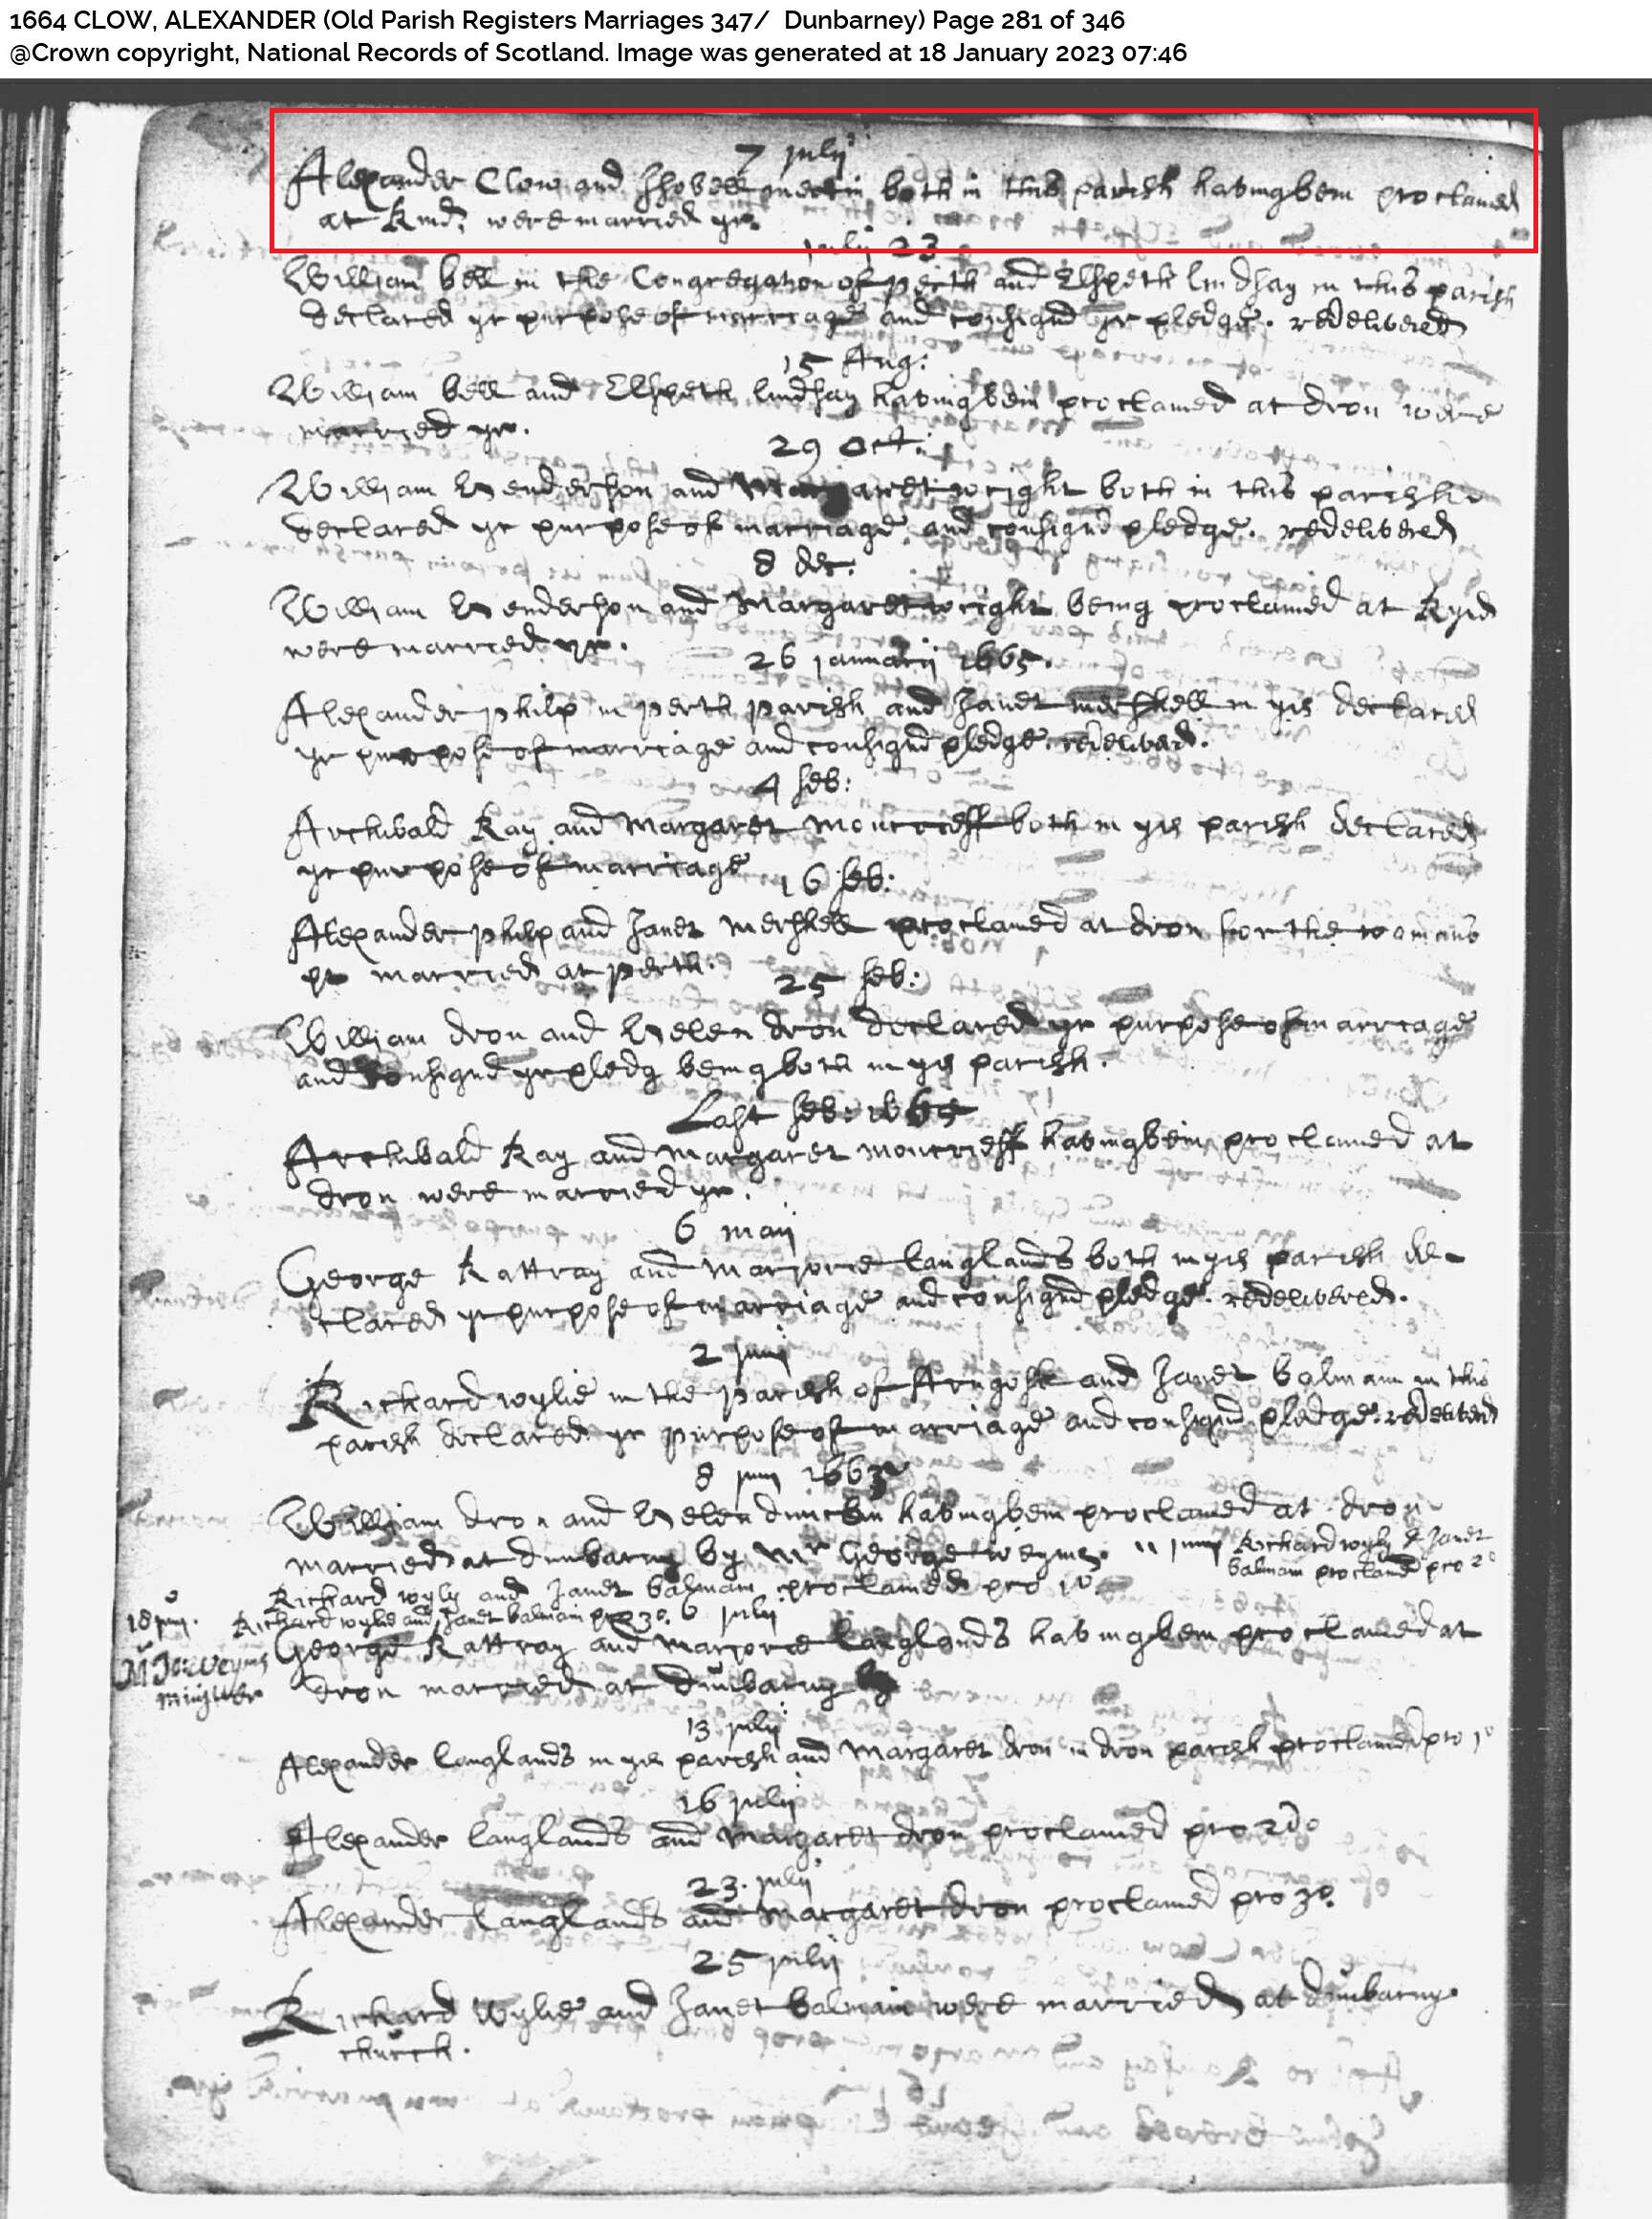 1664 CLOW, ALEXANDER (Old Parish Registers Marriages 347/ Dunbarney) Page 281 of 346
@Crown copyright, National Records of Scotland. Image was generated at 18 January 2023 07:46
7 julij
Alexander Clow and Issobell both in this parish having bein proclamed
at Kind: were married yr.
julij 23
William bell in the Congregation of perth and Elspeth lindsay in this parish
declared yr purpose of marriage and consignd yr pledge. redelivered
15 Aug:
William bell and Elspeth lindsay having bein proclamed at dron were
married yr.
29 Oct:
William Henderson and Margaret wright both in this parish
declared yr purpose of marriage and consignd pledge. redelivered
8 dec:
William Henderson and Margaret wright being proclamed at Kynd
were married yr.
26 januarij 1665.
Alexander philp in perth parish and Janet mershell in yis declared
yr purpose of marriage and consignd pledge. redeliverd.
4 feb:
Archbald Kay and Margaret moncrieff both in yis parish declared
yr purpose of marriage
16 feb:
Alexander philp and Janet mershell proclamed at dron for the
married at perth.
25 feb:
William dron and Helen dron declared yr purpose of marriage
and consignd yr pledg being both in yis parish.
Last feb: 1665
Archbald Kay and Margaret moncrieff having bein proclamed at
dron were married yr.
6 maij
George Rattray and marjorie langlands both in yis parish de-
clared yr purpose of marriage and consignd pledge. redelivered.
2 junij
Richard wylie in the parish of Arngosk and Janet balmain in this
parish declared yr purpose of marriage and consignd pledge. redeliverd
8 junij
William dron and Helen having bein proclamed at dron
married at dunbarny by Mr George weyms. 11 junij Richard wyly & Janet
balmain proclamed pro 2o
Richard wyly and Janet balmain proclamed pro 1o
18 junij. Richard wylie and Janet balmain pro 3o. 6 julij
George Rattray and marjorie langlands having bein proclamed at
dron married at dunbarny
minister
13 julij
Alexander langlands in yis parish and Margaret dron in dron parish proclamed pro 1o
16 julij
Alexander langlands and Margaret dron proclamed pro 2do
23. julij
Alexander langlands and Margaret dron proclamed pro 3o.
25 julij
Richard Wylie and Janet balmain were married at dunbarny
church.